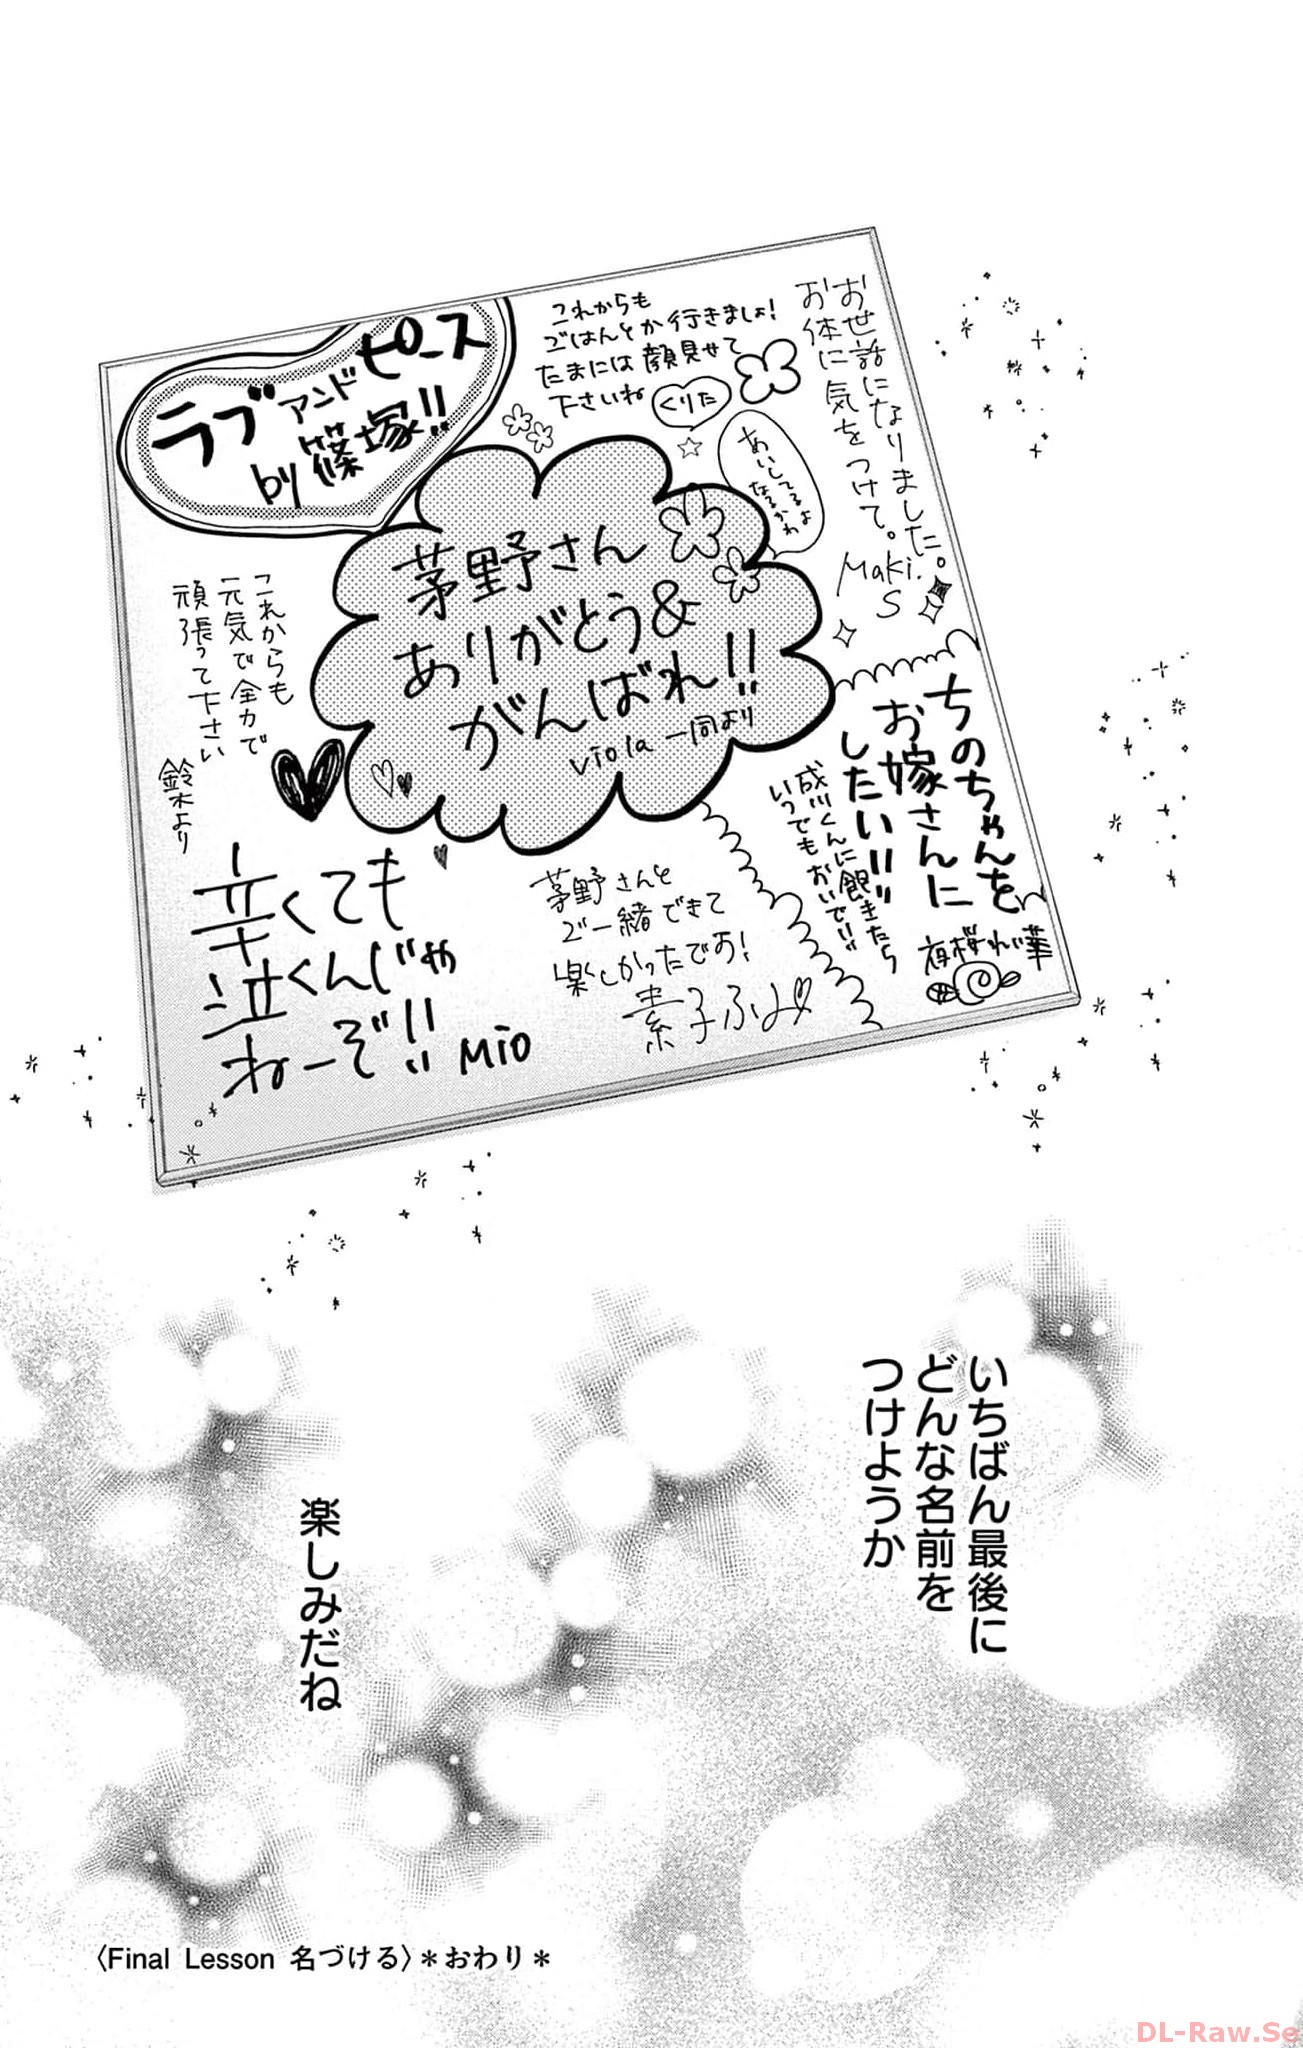 お世話になりました。
お体に気をつけて。
Maki.
S
これからも
ごはんとか行きましょ!
たまには顔見せて
下さいね
くりた
あいしてるよ
なるかわ
ラブアンドピース
by 篠塚!!
茅野さん
ありがとう&
がんばれ!!
viola 一同より
これからも
元気で全力で
頑張って下さい
鈴木より
ちのちゃんを
お嫁さんに
したい!!!
成川くんに飽きたら
いつでもおいで!!
夜桜れい華
辛くても
泣くんじゃ
ねーぞ!! MIO
茅野さんと
ご一緒できて
楽しかったです!
素子ふみ
いちばん最後に
どんな名前を
つけようか
楽しみだね
〈Final Lesson 名づける〉*おわり*
DL-Raw.Se